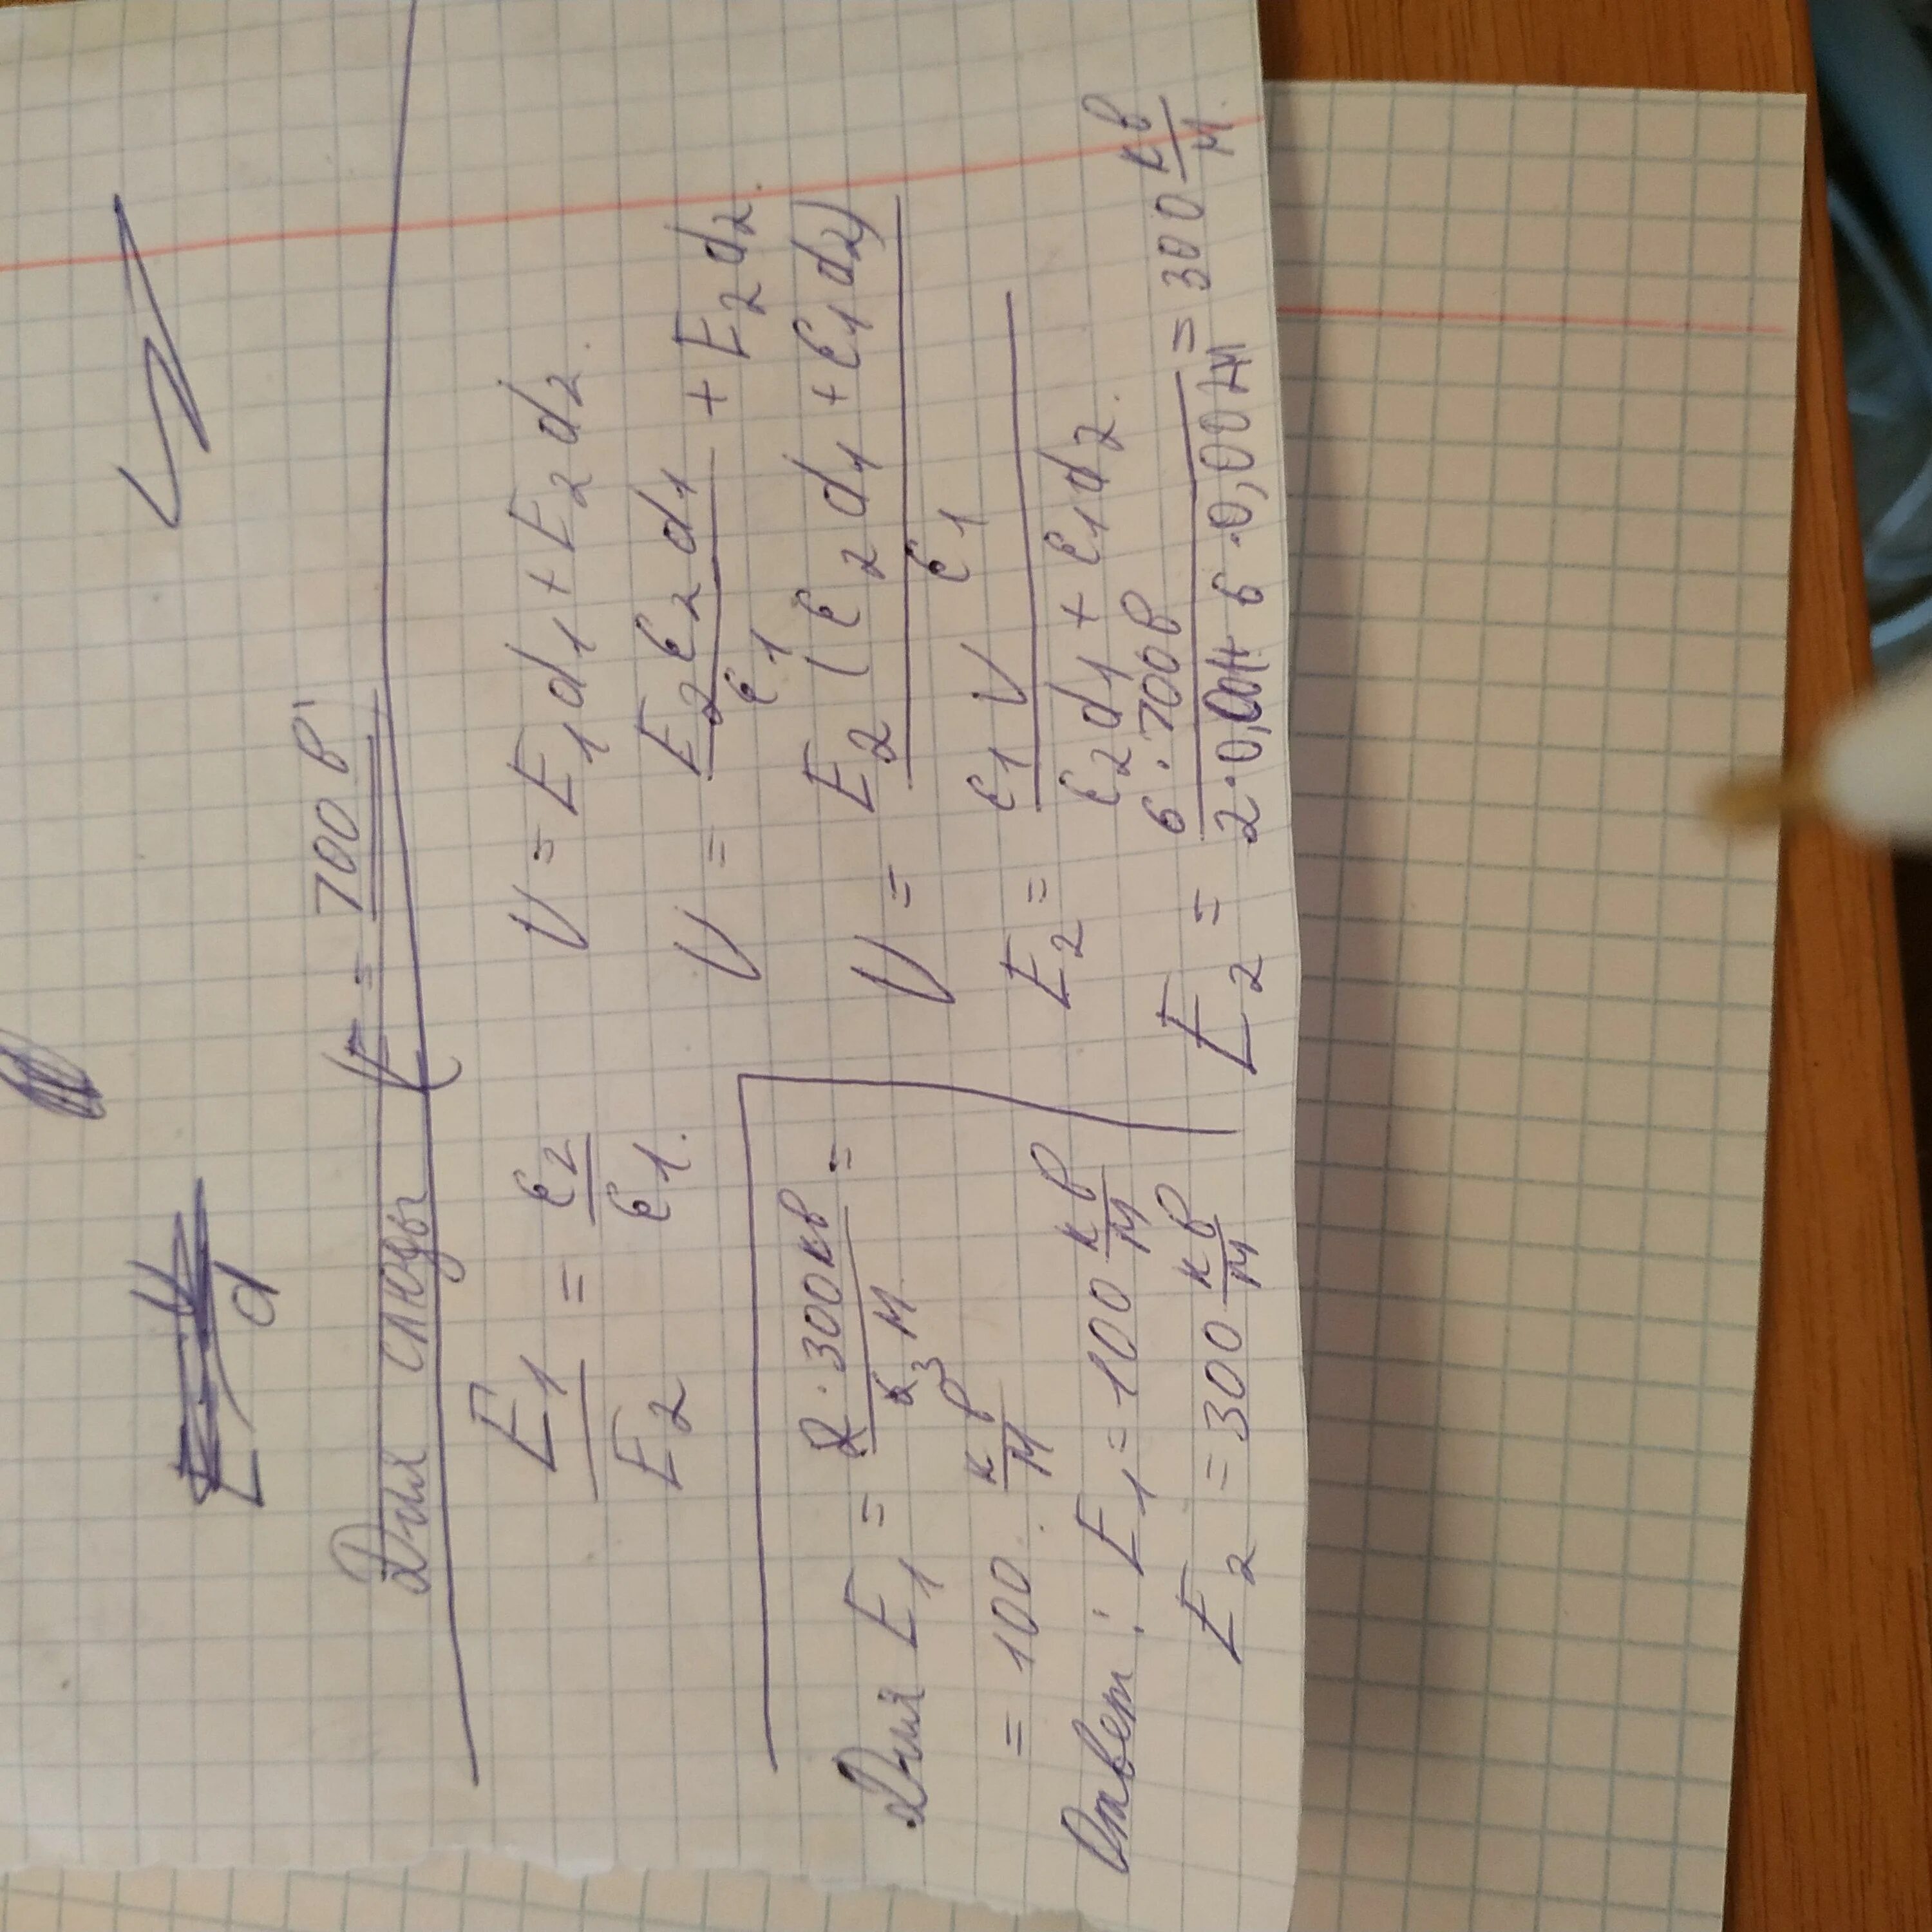 d
Для слюды E = 700 В
E1/E2 = ε2/ε1.
U = E1d1 + E2d2.
U = E2ε2d1/ε1 + E2d2.
U = E2(ε2d1 + ε1d2)/ε1
E2 = ε1U/ε2d1 + ε1d2.
E2 = 6·700В/2·0,001+6·0,001м = 300 кв/м.
Для E1 = 2·300кв/6 3 м =
= 100 кв/м.
Ответ: E1 = 100 кв/м
E2 = 300 кв/м